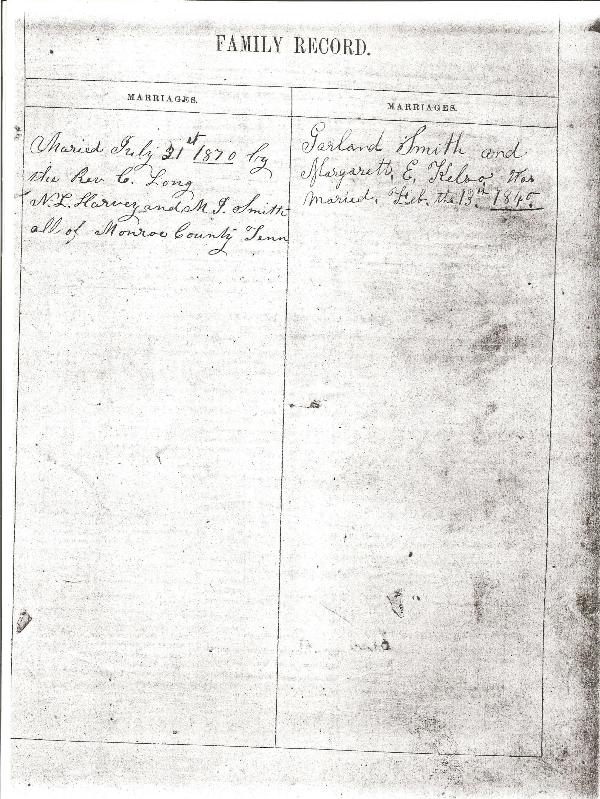 FAMILY RECORD.
MARRIAGES.
Maried July 31st 1870 by
the Rev C. Long
N. L. Harvey and M. J. Smith
all of Monroe County Tenn
MARRIAGES.
Garland Smith and
Margarett, E. Kelso Was
Maried. Feb. the 13th 1845.